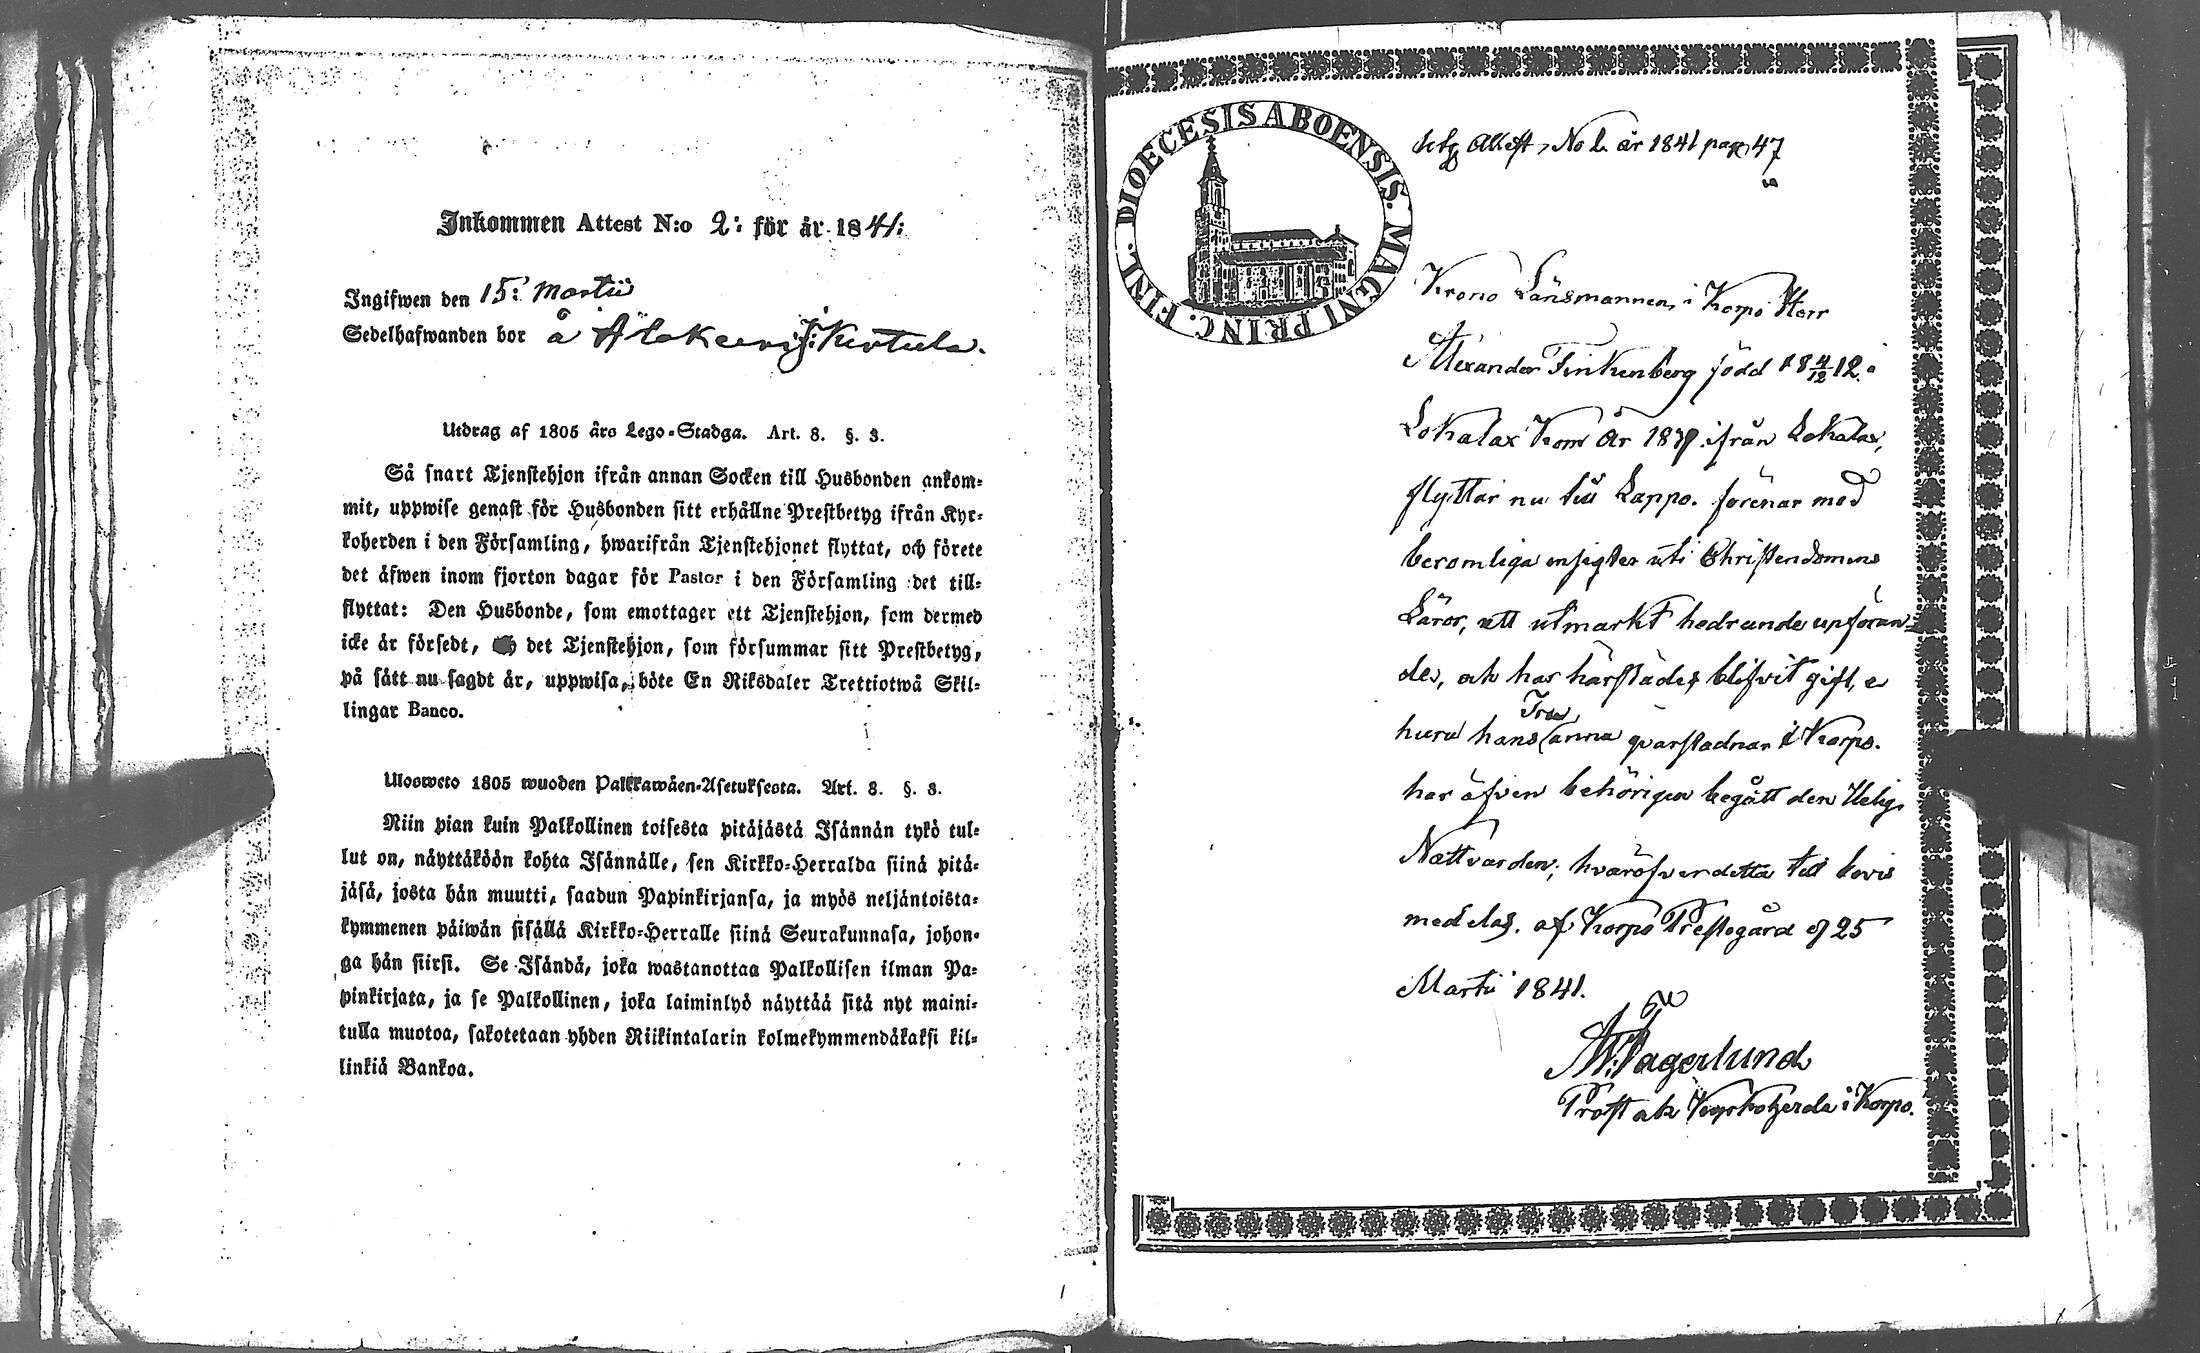 Inkommen Attest N:o 2: för år 1841:
Ingifwen den 15: Martii
Sedelhafwanden bor å
Utdrag af 1805 års Lego-Stadga. Art. 8. §. 3.
Så snart Tjenstehjon ifrån annan Socken till Husbonden ankom-
mit, uppwise genast för Husbonden sitt erhållne Prestbetyg ifrån Kyr-
koherden i den Församling, hwarifrån Tjenstehjonet flyttat, och förete
det äfwen inom fjorton dagar för Pastor i den Församling det till-
flyttat: Den Husbonde, som emottager ett Tjenstehjon, som dermed
icke är försedt, det Tjenstehjon, som försummar sitt Prestbetyg,
på sätt nu sagdt är, uppwisa, böte En Riksdaler Trettiotwå Skil-
lingar Banco.
Ulosweto 1805 wuoden Palkkawäen-Asetuksesta. Art. 8. §. 3.
Niin pian kuin Palkollinen toisesta pitäjästä Isännän tykö tul-
lut on, näyttäköön kohta Isännälle, sen Kirkko-Herralda siinä pitä-
jäsä, josta hän muutti, saadun Papinkirjansa, ja myös neljäntoista-
kymmenen päiwän sisällä Kirkko-Herralle siinä Seurakunnasa, johon-
ga hän siirsi. Se Isändä, joka wastanottaa Palkollisen ilman Pa-
pinkirjata, ja se Palkollinen, joka laiminlyö näyttää sitä nyt maini-
tulla muotoa, sakotetaan yhden Riikintalarin kolmekymmendäkaksi kil-
linkiä Bankoa.
FINL. DIOECESIS ABOENSIS. MAGNI PRINC.
Attest, No 2. år 1841 pag 47
Krono Länsmannen i Korpo Herr
Alexander Finkenberg född 18 4/12 12. i
Lokalax kom år ifrån Lokalax,
flyttar nu till Lappo. förenar med
beromliga insigter uti Christendomens
Läror, ett utmärkt hedrande upföran-
de, och har härstädes blifvit gift, e
huru hans Fru qvarstadnar i Korpo.
har äfven behörigen begått den Helig.
Nattvarden; hvaröfver detta till bevis
meddelas. af Korpo Prestegård d 25
Martii 1841.
Fagerlund
Prost och Kyrkoherde i Korpo.